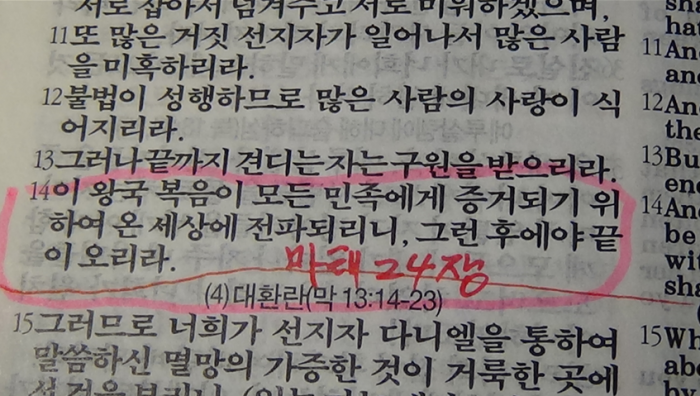 서로 잡아서 넘겨주고 서로 미워하겠으며,
11또 많은 거짓 선지자가 일어나서 많은 사람
을 미혹하리라.
12불법이 성행하므로 많은 사람의 사랑이 식
어지리라.
13그러나 끝까지 견디는 자는 구원을 받으리라.
14이 왕국 복음이 모든 민족에게 증거되기 위
하여 온 세상에 전파되리니, 그런 후에야 끝
이 오리라.
마태 24장
(4) 대환란(막 13:14-23)
15그러므로 너희가 선지자 다니엘을 통하여
말씀하신 멸망의 가증한 것이 거룩한 곳에
hat
11An
an
12An
the
13Bu
en
14An
be
wit
sha
15Wh
abo
by